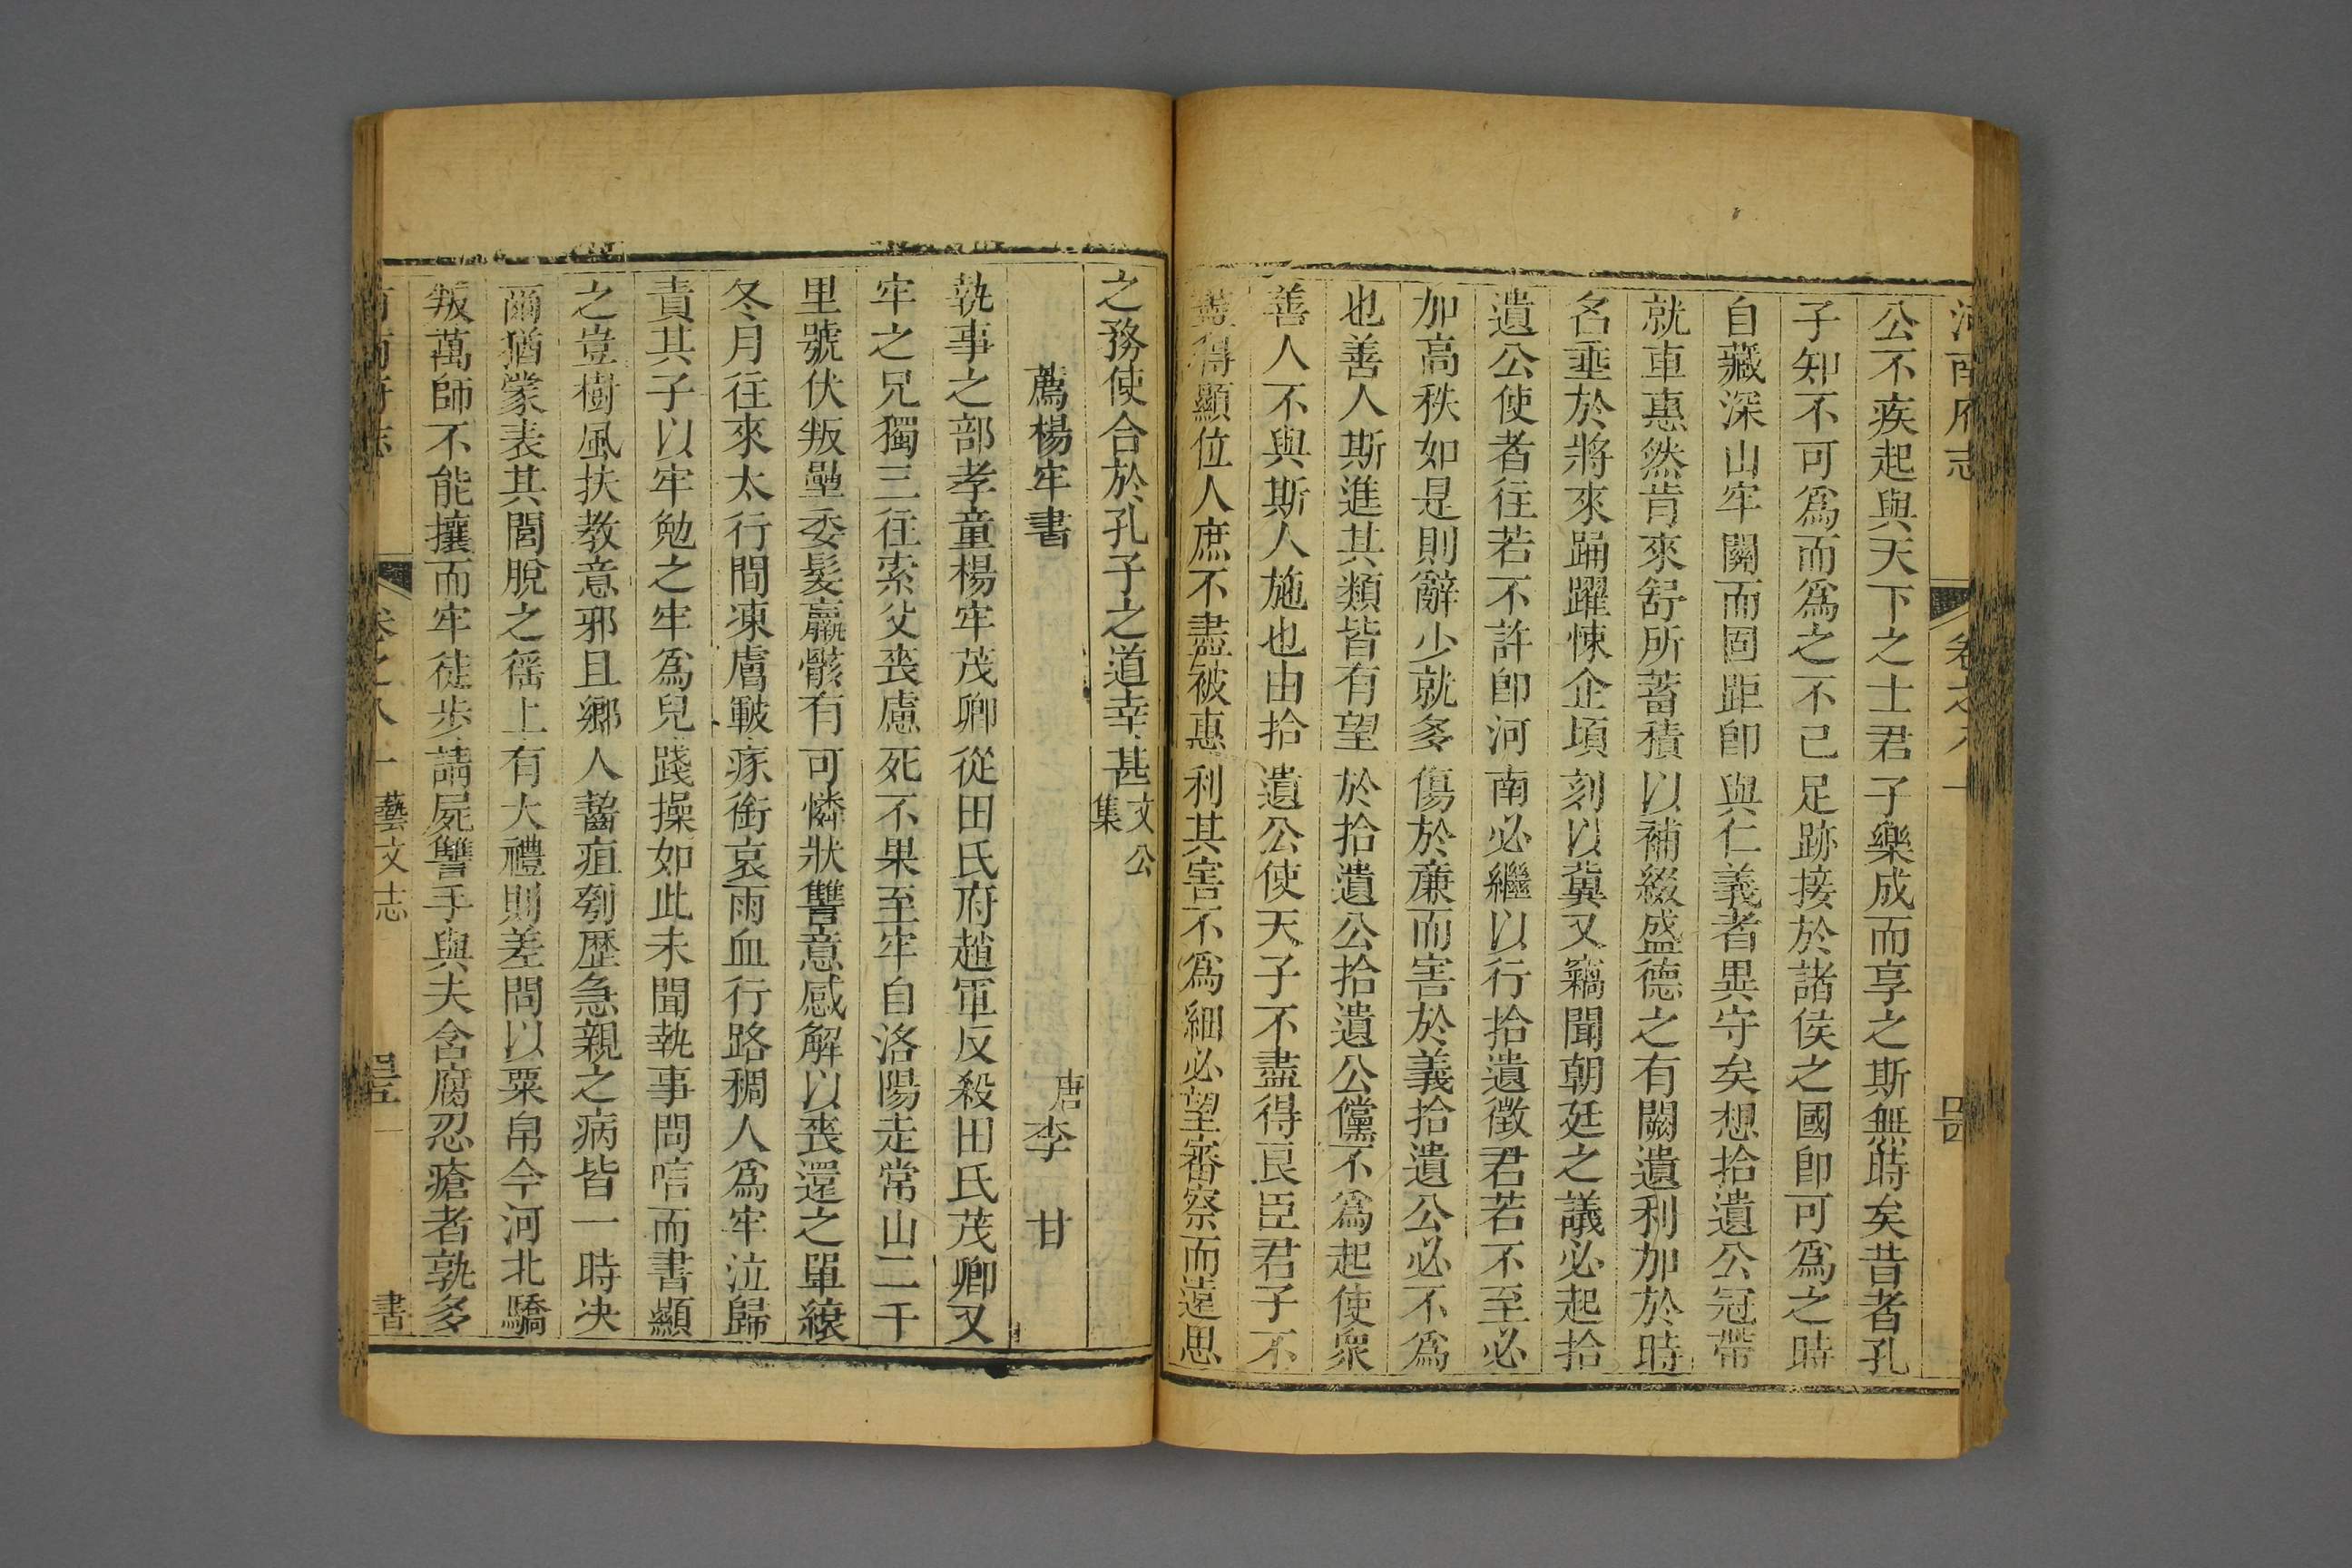 河南府志 卷之八十
公不疾起與天下之士君子樂成而享之斯無時矣昔者孔
子知不可爲而爲之不已足跡接於諸侯之國卽可爲之時
自藏深山牢關而固距卽與仁義者異守矣想拾遺公冠帶
就車惠然肯來舒所蓄積以補綴盛德之有闕遺利加於時
名垂於將來踊躍悚企頃刻以冀又竊聞朝廷之議必起拾
遺公使者往若不許卽河南必繼以行拾遺徵君若不至必
加高秩如是則辭少就多傷於廉而害於義拾遺公必不爲
也善人斯進其類皆有望於拾遺公拾遺公儻不爲起使衆
善人不與斯人施也由拾遺公使天子不盡得良臣君子不
盡得顯位人庶不盡被惠利其害不爲細必望審察而遠思
之務使合於孔子之道幸甚文公集
薦楊牢書 唐李甘
執事之部孝童楊牢茂卿從田氏府趙軍反殺田氏茂卿又
牢之兄獨三往索父喪慮死不果至牢自洛陽走常山二千
里號伏叛壘委髮羸骸有可憐狀讐意感解以喪還之單縗
冬月往來太行間凍膚皸瘃銜哀雨血行路稠人爲牢泣歸
責其子以牢勉之牢爲兒踐操如此未聞執事問唁而書顯
之豈樹風扶教意邪且鄉人齧疽刳歴急親之病皆一時决
爾猶蒙表其閭脫之徭上有大禮則差問以粟帛今河北驕
叛萬師不能攘而牢徒步請屍讐手與夫含腐忍瘡者孰多
河南府志 卷之八十 藝文志 書